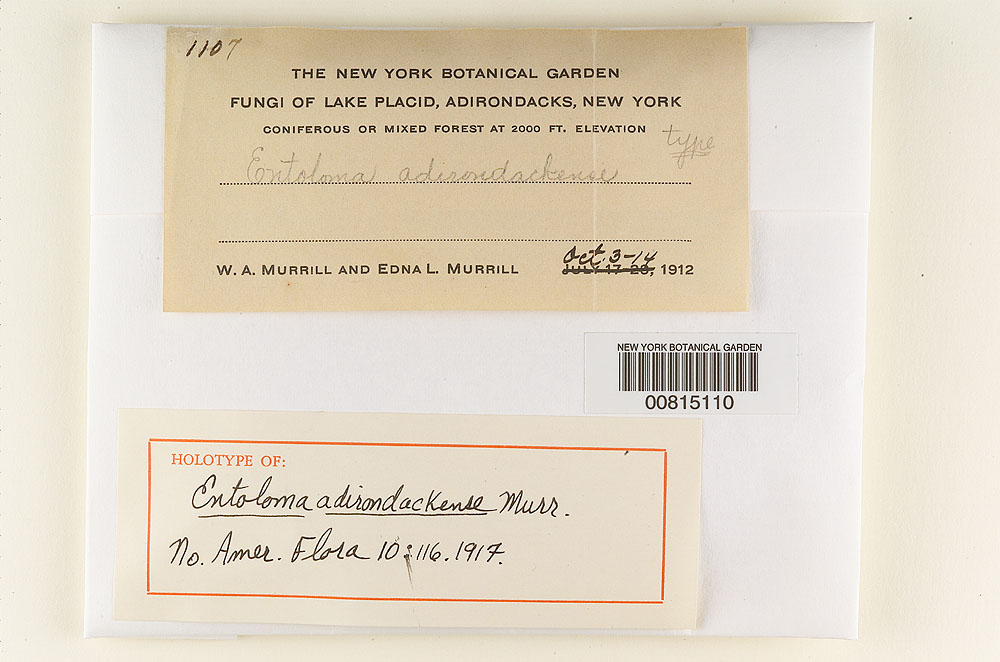 1107
THE NEW YORK BOTANICAL GARDEN
FUNGI OF LAKE PLACID, ADIRONDACKS, NEW YORK
CONIFEROUS OR MIXED FOREST AT 2000 FT. ELEVATION
type
Entoloma adirondackense
Oct. 3-14
W. A. MURRILL AND EDNA L. MURRILL JULY 17-29, 1912
NEW YORK BOTANICAL GARDEN
00815110
HOLOTYPE OF:
Entoloma adirondackense Murr.
No. Amer. Flora 10:116. 1917.